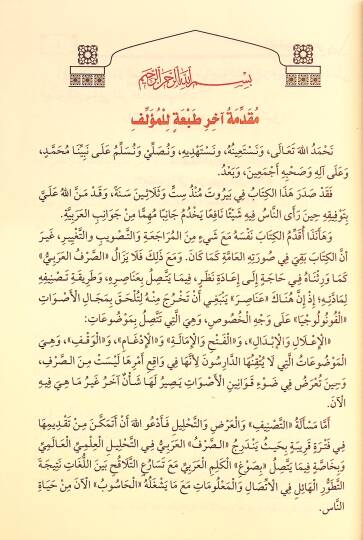 بسم الله الرحمن الرحيم
مُقَدِّمَةُ آخِرِ طَبْعَةٍ لِلْمُؤَلِّفِ
نَحْمَدُ اللهَ تَعَالَى، وَنَسْتَعِينُهُ، وَنَسْتَهْدِيهِ، وَنُصَلِّي وَنُسَلِّمُ عَلَى نَبِيِّنَا مُحَمَّدٍ،
وَعَلَى آلِهِ وَصَحْبِهِ أَجْمَعِينَ، وَبَعْدُ.
فَقَدْ صَدَرَ هَذَا الكِتَابُ فِي بَيْرُوتَ مُنْذُ سِتٍّ وَثَلَاثِينَ سَنَةً، وَقَدْ مَنَّ اللهُ عَلَيَّ
بِتَوْفِيقِهِ حِينَ رَأَى النَّاسُ فِيهِ شَيْئًا نَافِعًا يَخْدُمُ جَانِبًا مُهِمًّا مِنْ جَوَانِبِ العَرَبِيَّةِ.
وَهَأَنَذَا أُقَدِّمُ الكِتَابَ نَفْسَهُ مَعَ شَيْءٍ مِنَ المُرَاجَعَةِ وَالتَّصْوِيبِ وَالتَّغْيِيرِ، غَيْرَ
أَنَّ الكِتَابَ بَقِيَ فِي صُورَتِهِ العَامَّةِ كَمَا كَانَ. وَمَعَ ذَلِكَ فَلَا يَزَالُ «الصَّرْفُ العَرَبِيُّ»
كَمَا وَرِثْنَاهُ فِي حَاجَةٍ إِلَى إِعَادَةِ نَظَرٍ، فِيمَا يَتَّصِلُ بِعَنَاصِرِهِ، وَطَرِيقَةِ تَصْنِيفِهِ
لِمَادَّتِهِ؛ إِذْ إِنَّ هُنَاكَ «عَنَاصِرَ» يَنْبَغِي أَنْ تَخْرُجَ مِنْهُ لِتُلْحَقَ بِمَجَالِ الأَصْوَاتِ
«الفُونُولُوجْيَا» عَلَى وَجْهِ الخُصُوصِ، وَهِيَ الَّتِي تَتَّصِلُ بِمَوْضُوعَاتِ:
«الإِعْلَالِ وَالإِبْدَالِ»، وَ«الفَتْحِ وَالإِمَالَةِ» وَ«الإِدْغَامِ»، وَ«الوَقْفِ»، وَهِيَ
المَوْضُوعَاتُ الَّتِي لَا يُتْقِنُهَا الدَّارِسُونَ لِأَنَّهَا فِي وَاقِعِ أَمْرِهَا لَيْسَتْ مِنَ الصَّرْفِ،
وَحِينَ تُعْرَضُ فِي ضَوْءِ قَوَانِينِ الأَصْوَاتِ يَصِيرُ لَهَا شَأْنٌ آخَرُ غَيْرُ مَا هِيَ فِيهِ
الآنَ.
أَمَّا مَسْأَلَةُ «التَّصْنِيفِ» وَالعَرْضِ وَالتَّحْلِيلِ فَأَدْعُو اللهَ أَنْ أَتَمَكَّنَ مِنْ تَقْدِيمِهَا
فِي فَتْرَةٍ قَرِيبَةٍ بِحَيْثُ يَنْدَرِجُ «الصَّرْفُ» العَرَبِيُّ فِي التَّحْلِيلِ العِلْمِيِّ العَالَمِيِّ
وَبِخَاصَّةٍ فِيمَا يَتَّصِلُ «بِصَوْغِ» الكَلِمِ العَرَبِيِّ مَعَ تَسَارُعِ التَّلَاقُحِ بَيْنَ اللُّغَاتِ نَتِيجَةَ
التَّطَوُّرِ الهَائِلِ فِي الاتِّصَالِ وَالمَعْلُومَاتِ مَعَ مَا يَشْغَلُهُ «الحَاسُوبُ» الآنَ مِنْ حَيَاةِ
النَّاسِ.